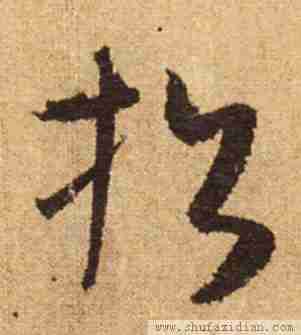 松
www.shufazidian.com